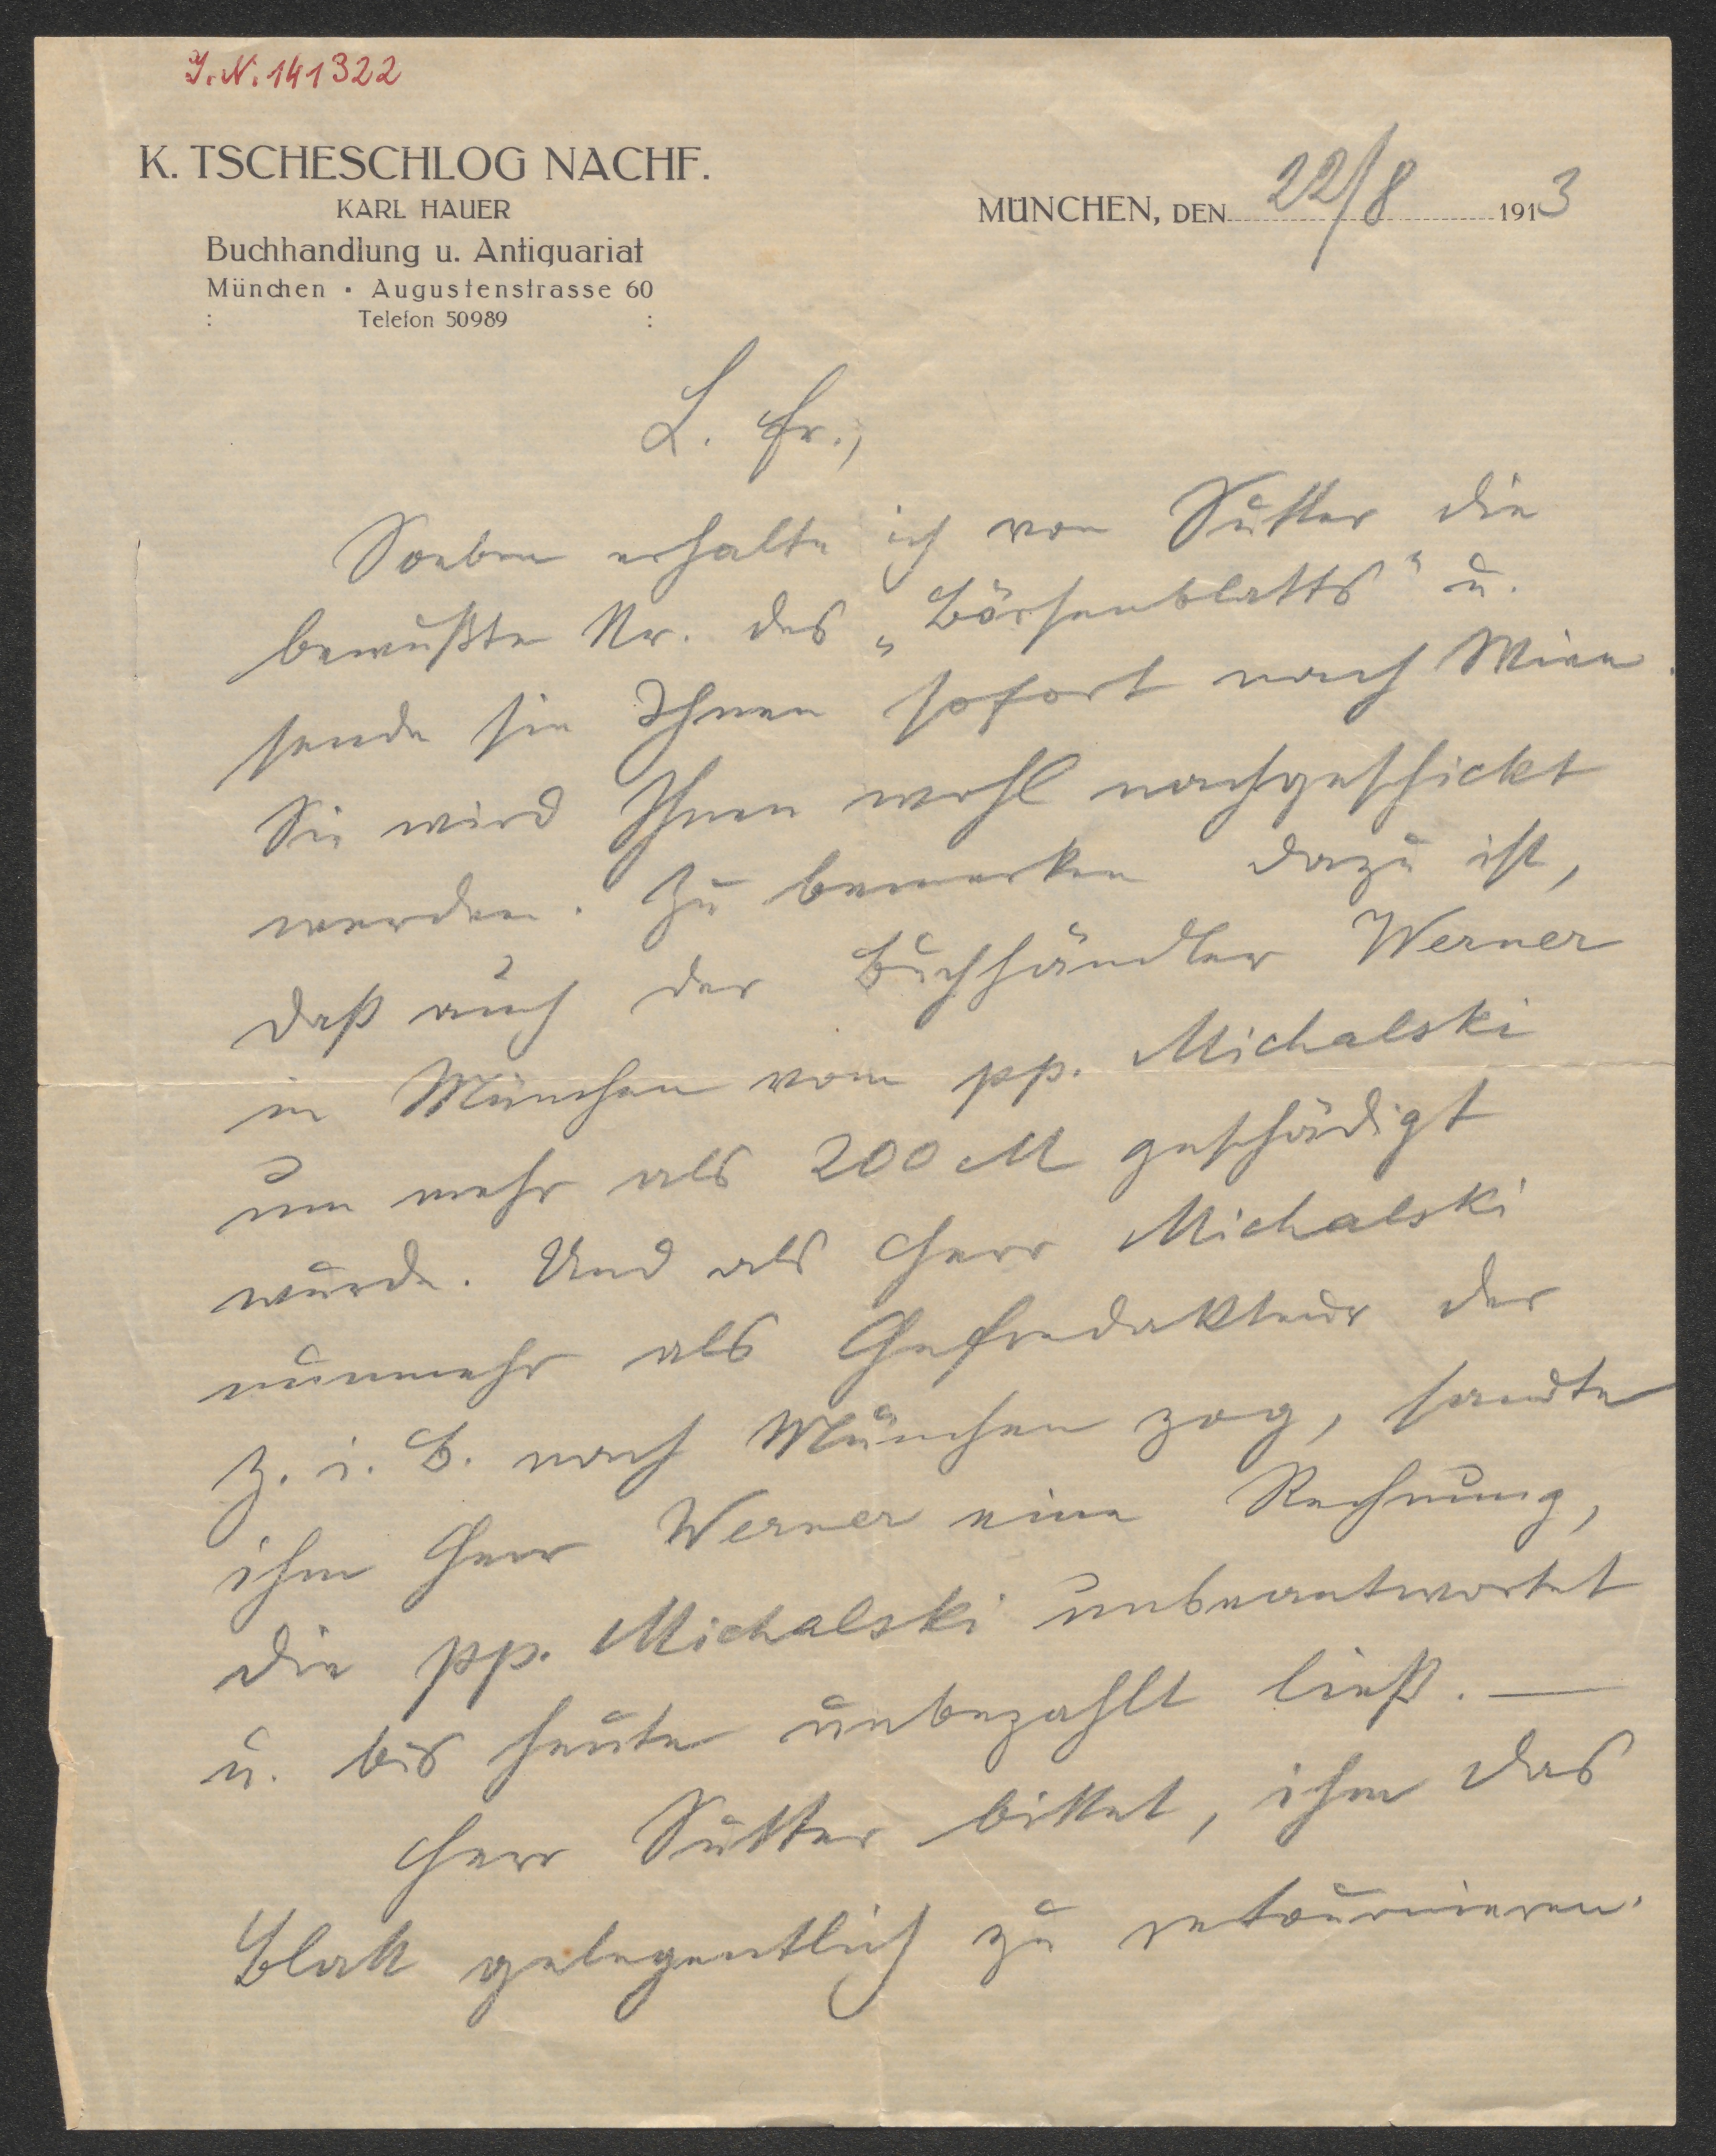 J.N. 141322
K. TSCHESCHLOG NACHF.
KARL HAUER
Buchhandlung u. Antiquariat
München • Augustenstrasse 60
: Telefon 50989 :
MÜNCHEN, DEN 22/8 1913
L. Fr.,
Soeben erhalte ich von Sutter die
bewußte Nr. des „Börsenblatts" u.
sende sie Ihnen sofort nach Wien.
Sie wird Ihnen wohl nachgeschickt
werden. Zu bemerken dazu ist,
daß auch der Buchhändler Werner
in München vom pp. Michalski
um mehr als 200 M geschädigt
wurde. Und als Herr Michalski
nunmehr als Chefredakteur der
Z. i. B. nach München zog, sandte
ihm Herr Werner eine Rechnung,
die pp. Michalski unbeantwortet
u. bis heute unbezahlt ließ. —
Herr Sutter bittet, ihm das
Blatt gelegentlich zu retournieren.